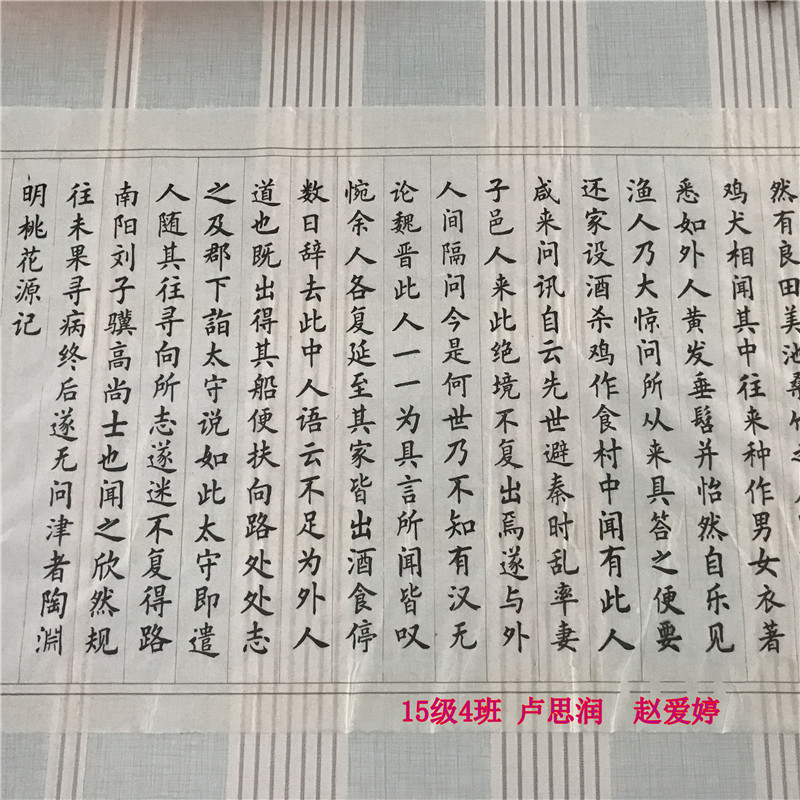 然有良田美池桑竹之
鸡犬相闻其中往来种作男女衣著
悉如外人黄发垂髫并怡然自乐见
渔人乃大惊问所从来具答之便要
还家设酒杀鸡作食村中闻有此人
咸来问讯自云先世避秦时乱率妻
子邑人来此绝境不复出焉遂与外
人间隔问今是何世乃不知有汉无
论魏晋此人一一为具言所闻皆叹
惋余人各复延至其家皆出酒食停
数日辞去此中人语云不足为外人
道也既出得其船便扶向路处处志
之及郡下詣太守说如此太守即遣
人随其往寻向所志遂迷不复得路
南阳刘子骥高尚士也闻之欣然规
往未果寻病终后遂无问津者陶渊
明桃花源记
15级4班 卢思润 赵爱婷